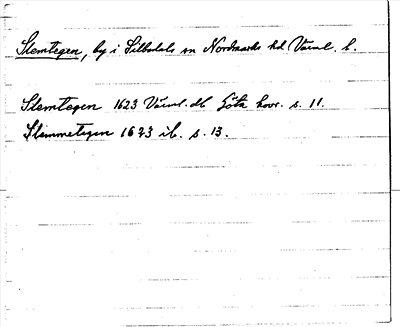 Stemtegen, by i Silbodals sn Nordmarks hd Värml. l.
Stemtegen 1623 Värml. db Göta hovr. s. 11.
Stemmetegen 1623 ib. s. 13.